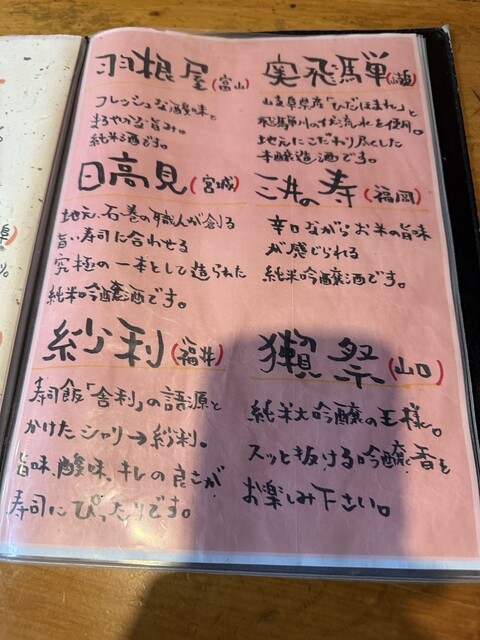 羽根屋(富山)
フレッシュな酸味と
まろやかな旨み。
純米酒です。
奥飛騨(岐阜)
岐阜県産「ひだほまれ」と
飛騨川の伏流水を使用。
地元にこだわり尽くした
本醸造酒です。
日高見(宮城)
地元、石巻の職人が創る
旨い寿司に合わせる
究極の一本として造られた
純米吟醸酒です。
三井の寿(福岡)
辛口ながらお米の旨味
が感じられる
純米吟醸酒です。
紗利(福井)
寿司飯「舎利」の語源と
かけたシャリ→紗利。
旨味、酸味、キレの良さが
寿司にぴったりです。
獺祭(山口)
純米大吟醸の王様。
スッと抜ける吟醸香を
お楽しみ下さい。